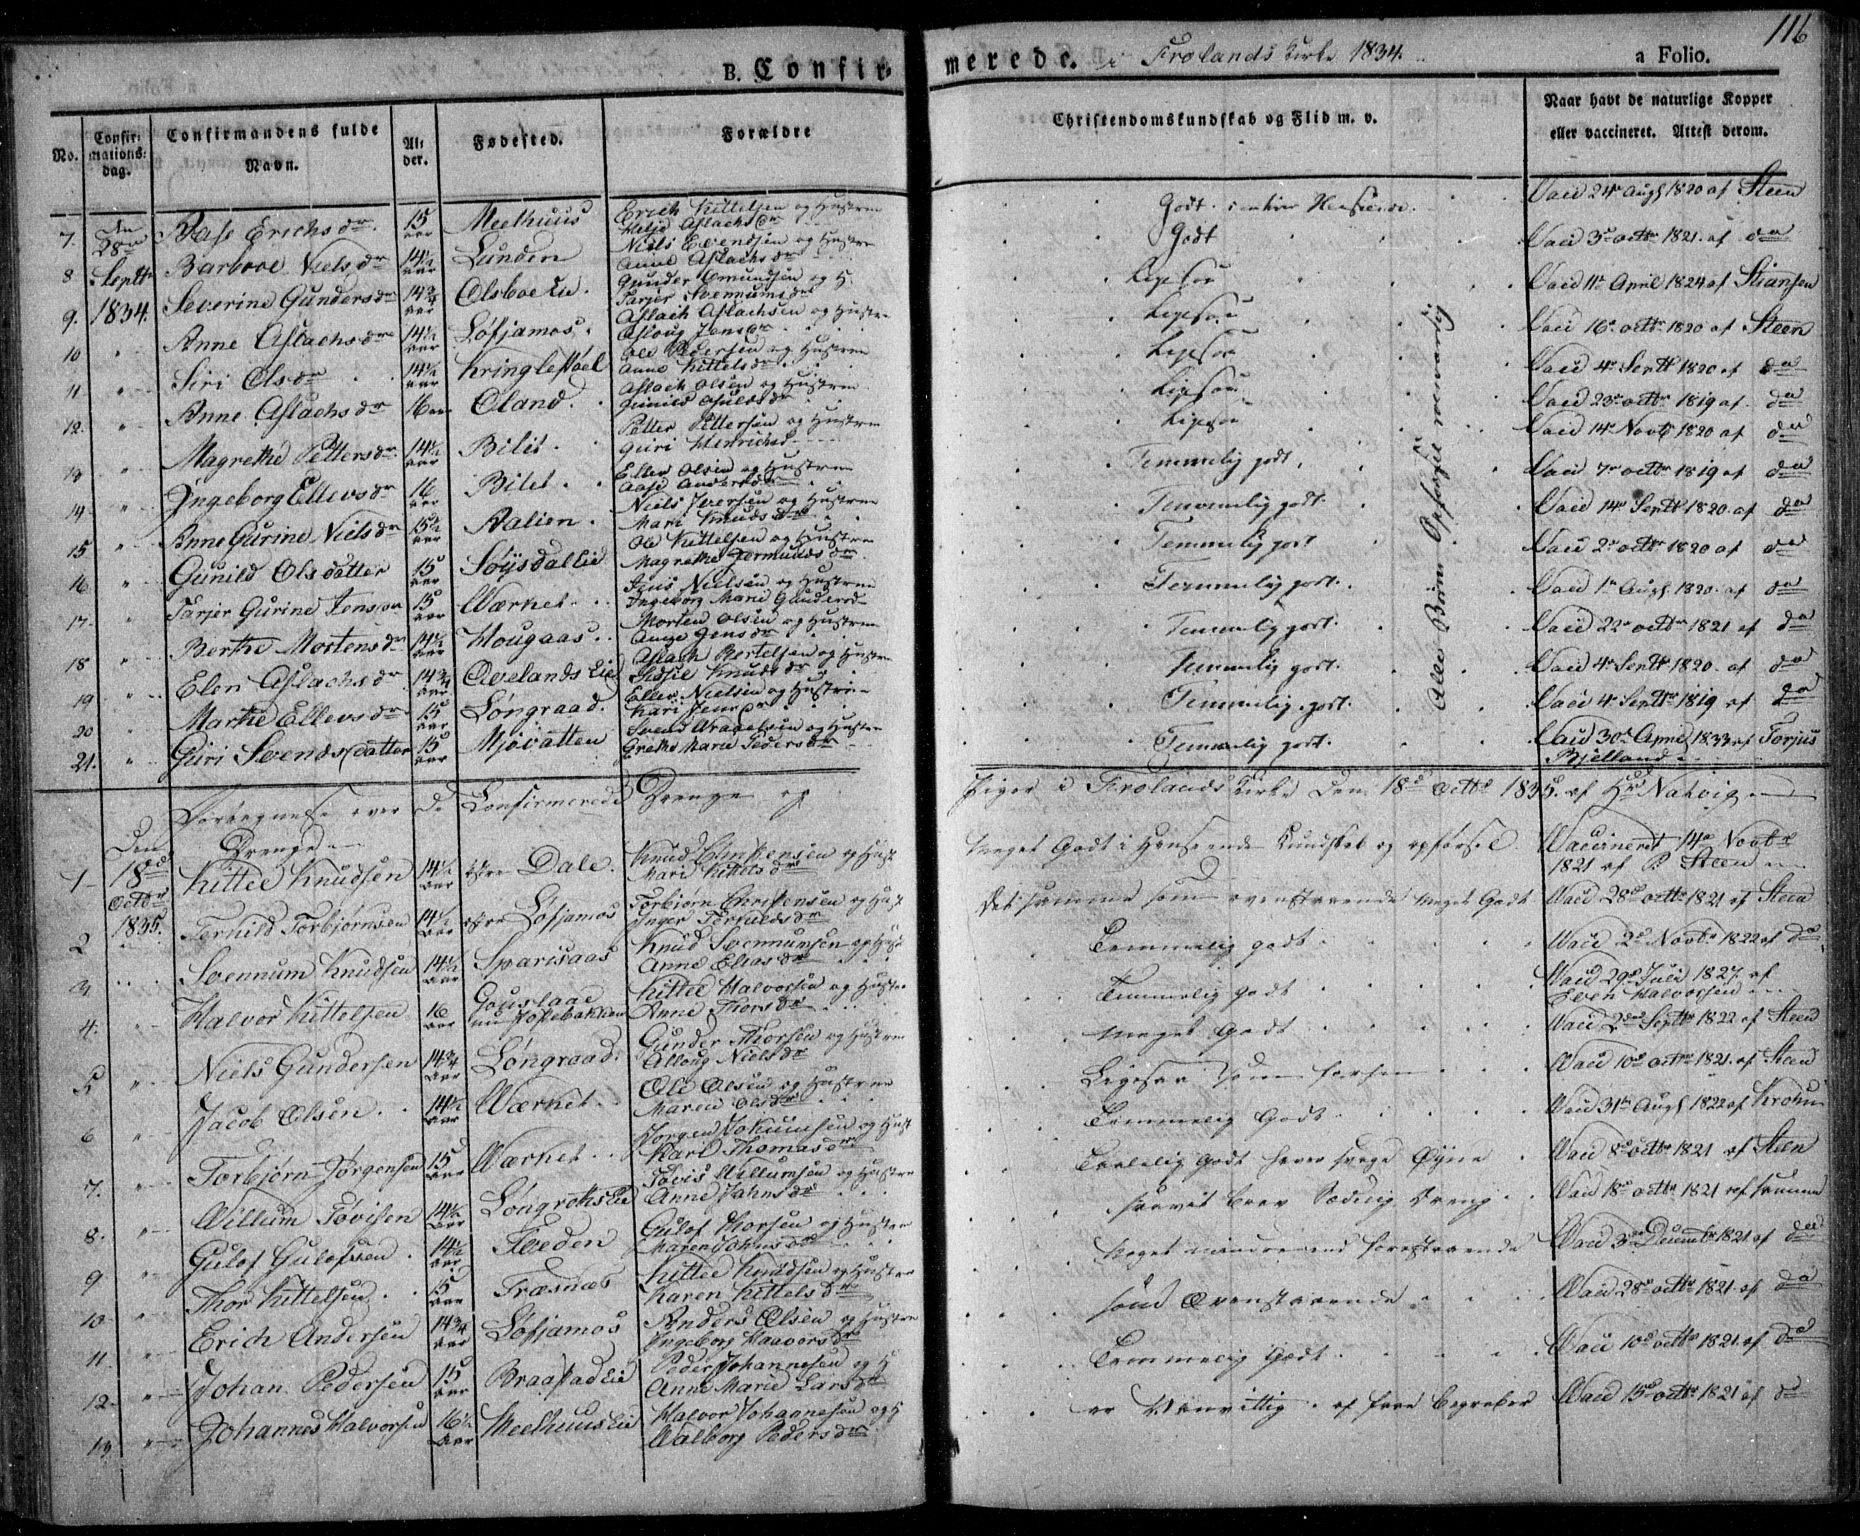 116
B. Confirmerede. i Frolands Kirke 1834.
a Folio.
No.
Confirmations-dag.
Confirmandens fulde Navn.
Alder.
Fødested.
Forældre
Christendomskundskab og Flid m. v.
Naar havt de naturlige Kopper eller vaccineret. Attest derom.
7. den 28de Aase Erichsdr. 15 aar Meelhuus Erich Kittelsen og Hustrue Aslachsdr Godt Vacc 24de Augs 1820 af Steen
8 Septbr Barbroe Nielsdr 14½ aar Lunden Niels Evendsen og Hustrue Anne Aslachsdr Godt Vacc 3de octbr 1821. af do
9. 1834. Severine Gundersdr 14¾ aar Olsboe Eie. Gunder Omundsen og H. Tarjer Svennumsdr Ligesaa Vacc 11te April 1824 af Stiansen
10 " Anne Aslachsdr 14½ aar Løfjamos. Aslach Aslachsen og Hustrue Aslaug Jensdr Ligesaa Vacc 16de octbr 1820 af Steen
11 " Siri Olsdr 14½ aar Kringlestøel Ole Pedersen og Hustrue Anne Kittelsdr Ligesaa Vacc 4de Septbr 1820 af do
12. " Anne Aslachsdr 16 aar Oland. Aslach Olsen og Hustrue Gunild Ligesaa Vacc 23de octbr 1819 af do
13 " Magrethe Pettersdr 14½ aar Bilet Petter Pettersen og Hustrue Guri Henrichsd Ligesaa Vacc 14de Novbr 1820 af do
14 " Ingeborg Ellevsdr 16 aar Bilet. Ellev Olsen og Hustrue Aase Andersdr Temmelig godt. Vacc 7de octbr 1819 af do
15 " Anne Gurine Nielsdr 15½ aar Aalien. Niels Iversen og Hustrue Mari Knudsdr Temmelig godt. Vacc 14de Septbr 1820. af do
16 " Gunild Olsdatter 15 aar Søysdal Eie Ole Kittelsen og Hustrue Magrethe Jermundsdr Temmelig godt Vacc 2de octbr 1820 af do
17. " Tarjer Gurine Jensdr 15 aar Værket. Jens Nielsen og Hustrue Ingeborg Marie Gundersd. Temmelig godt. Vacc 1te Augs 1820. af do
18 " Berthe Mortensdr 14½ aar Hougaas. Morten Olsen og Hustrue Jensdr Temmelig godt. Vacc 22de octbr 1821 af do
19 " Elen Aslachsdr 14¾ aar Ovelands Eie Aslach Bertelsen og Hustrue Sidsel Knudsdr Temmelig godt. Vacc 4de Septbr 1820. af do
20 " Marthe Ellevsdr 15 aar Løngraad. Ellev Nielsen og Hustrue Kari Jensdr Temmelig godt. Vacc 4de Septbr 1819 af do
21. " Guri Svendsdatter 15 aar Mjøvatten Svend Uraaelsen og Hustrue Grethe Marie Pedersdr Temmelig godt. Vacc 30te April 1833 af Torjus Bjelland
Alles Opførsel
Fortegnelse over de Confirmerede Drenge og Piger i Frolands Kirke den 18de octbr 1835. af Hr Natvig
Drenge
1 Den 18de octbr 1835. Kittel Knudsen 14½ aar Dale. Knud og Hust Mari Kittelsdr Meget Godt i Henseende Kundskab og opførsel Vaccineret 14de Novbr 1821 af P. Steen
2 Terkild Torbjørnsen 14½ aar Løfjamos Torbjørn Christensen og Hust Inger Terkildsdr Det samme som ovenstaaende meget Godt Vacc 28de octbr 1821 af Steen
3 Svennum Knudsen 14½ aar Sparisaas Knud Svennumsen og Hus Anne Eliasdr Temmelig godt Vacc 2de Novbr 1822 af do
4. " Halvor Kittelsen 16 aar Gouslaae nu Jossebakken Kittel Halvorsen og Hustrue Anne Thorsdr Temmelig godt Vacc 29de Juli 1827 af Even Halvorsen
5 " Niels Gundersen 14¾ aar Løngraad. Gunder Thorsen og Hustrue Aslaug Nielsdr Meget Godt Vacc 2den Septbr 1822 af Steen
6 " Jacob Olsen. 14½ aar Værket. Ole Olsen og Hustrue Maren Olsdr Ligesaa som Vacc 10de octbr 1821. af Steen
7. " Torbjørn Jørgensen 15 aar Værket. Jørgen Jokumsen og Hust Kari Thomasdr Temmelig Godt Vacc 31te Augs 1822 af Krohn
8. " Villum Tøvisen 14½ aar Løngrohs Eie Tøvis Villumsen og Hustrue Anne Jahnsdr Godt svage Øyne Vacc 8de octbr 1821 af Steen
9 " Gulof Gulofssen. 14½ aar Fveden Gulof Thorsen og Hustrue Maren Johnsdr Vacc 18de octbr 1821 af samme
10 " Thor Kittelsen. 15 aar Træsnæs Kittel Knudsen og Hustrue Karen Kittelsdr meget mindre end forestaaende Vacc 3de Decembr 1821 af do
11 " Erich Andersen 14¾ aar Løfjamos Anders Olsen og Hustrue Ingeborg Haavorsdr som Ovenstaaende Vacc 28de octbr 1821 af do
12 " Johan Pedersen 15 aar Braastad Eie Peder Johannesen og H Anne Marie Larsdr Temmelig Godt. Vacc 10de octbr 1821. af do
13 " Johannes Halvorsen 16½ aar Meelhuus Eie Halvor Johannesen og H Valborg Pedersdr er Vanvittig af Begreber Vacc 15de octbr 1821 af do